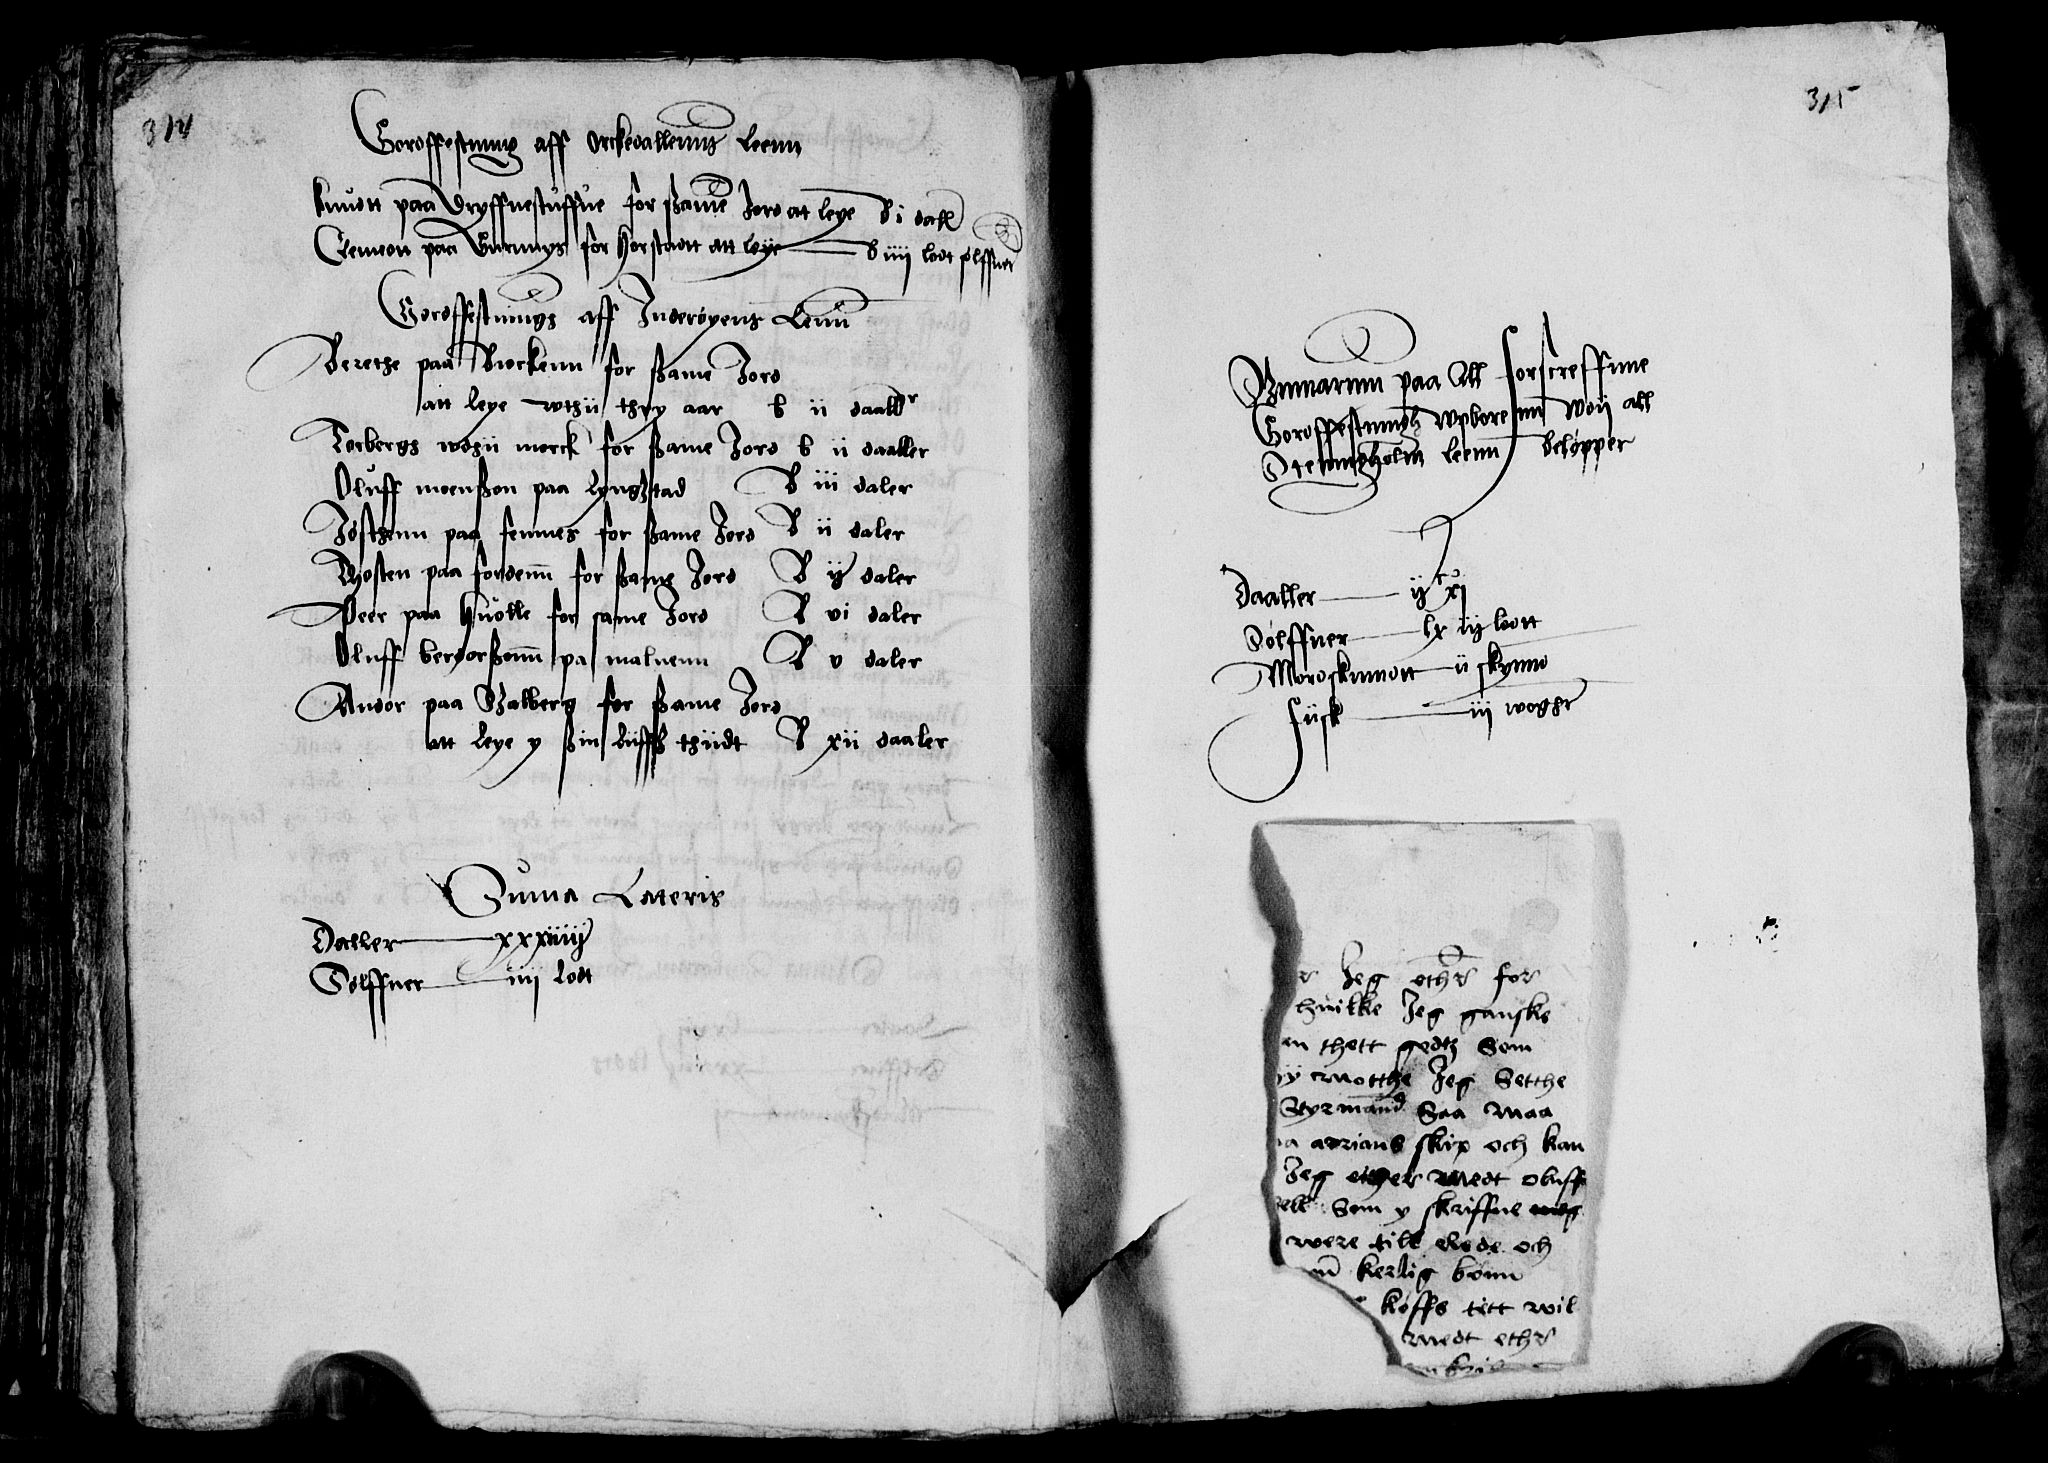 314
Gordffestning aff Orckedallenns leenn
knudtt paa Dryffnestuffue for ßame Jord at leye b i dall
Clemen paa Gurnnys for horstadtt att leije b iiij lodt sølffner
Gordffestnings aff Inderøyens Lenn
Berethe paa Birckenn for ßame Jord
att leye vthii thry aar b ii daaller
Torbergs vdhii morck for ßame Jord b ii daaller
Oluff moenßon paa Lyngstad B iii daler
Josthenn paa fennes for ßame Jord B ii daler
Thosten paa fordenn for ßame Jord B ij daler
Peer paa huolle for same Jord B vi daler
Oluff berdorßonn pa maluenn B v daler
Andor paa Valberg for ßame Jord
att leye y ßin liiffß thiidt B xii daaler
Suma Lateris
Daller xxxiiiij
Sølffner iiij lodt
315
Summarum paa All forscreffnne
Gordffestningh vpborenn vdii all
Stenvigholm leenn beløpper
Daaller ijc xi
Sølffner lx iij lodtt
Mordskinndtt ii skynnd
fiisk iij wogher
r Jeg ether for
huilke Jeg ganske
en thett godtz Som
ij motthe Jeg Setthe
Styrmand Saa maa
a adrians skip och kan
Jeg ether medt oluff
ell Som y skriffue meg
were till Rede och
m kerlig bønn
køffs titt wil
medt ether